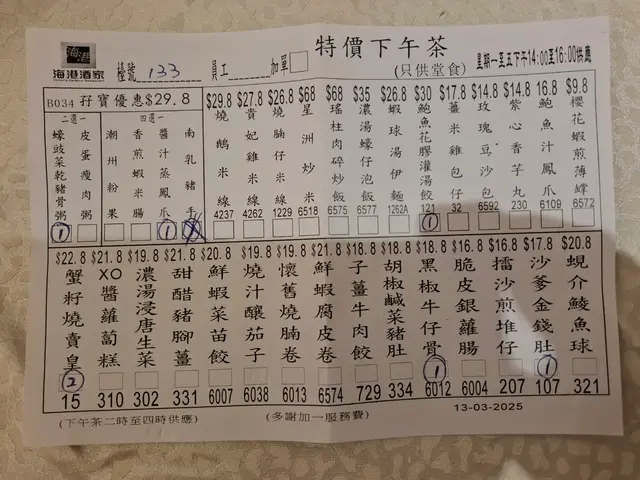 海港
海港酒家
檯號 133 員工 加單
特價下午茶
(只供堂食)
星期一至五下午14:00至16:00供應
B034 孖寶優惠$29.8
二選一
蠔豉菜乾豬骨粥 1
皮蛋瘦肉粥
四選一
潮州粉果
香煎蝦米腸
醬汁蒸鳳爪 1
南乳豬手
$29.8 燒鵝米線 4237
$27.8 貴妃雞米線 4262
$26.8 燒腩仔米線 1229
$68 星洲炒米 6518
$68 瑤柱肉碎炒飯 6575
$35 濃湯蠔仔泡飯 6577
$26.8 蝦球湯伊麵 1262A
$30 鮑魚花膠灌湯餃 121 1
$17.8 薑米雞包仔 32
$14.8 玫瑰豆沙包 6592
$14.8 紫心芋丸 230
16.8 鮑魚汁鳳爪 6109
$9.8 櫻花蝦煎薄罉 6572
$22.8 蟹籽燒賣皇 2 15
$21.8 XO醬蘿蔔糕 310
$19.8 濃湯浸唐生菜 302
$21.8 甜醋豬腳薑 331
$20.8 鮮蝦菜苗餃 6007
$19.8 燒汁釀茄子 6038
$19.8 懷舊燒腩卷 6013
$21.8 鮮蝦腐皮卷 6574
$18.8 子薑牛肉餃 729
$18.8 胡椒鹹菜豬肚 334
$18.8 黑椒牛仔骨 1 6012
$16.8 脆皮銀蘿腸 6004
$16.8 擂沙煎堆仔 207
$17.8 沙爹金錢肚 1 107
$20.8 蜆介鯪魚球 321
(下午茶二時至四時供應)
(多謝加一服務費)
13-03-2025